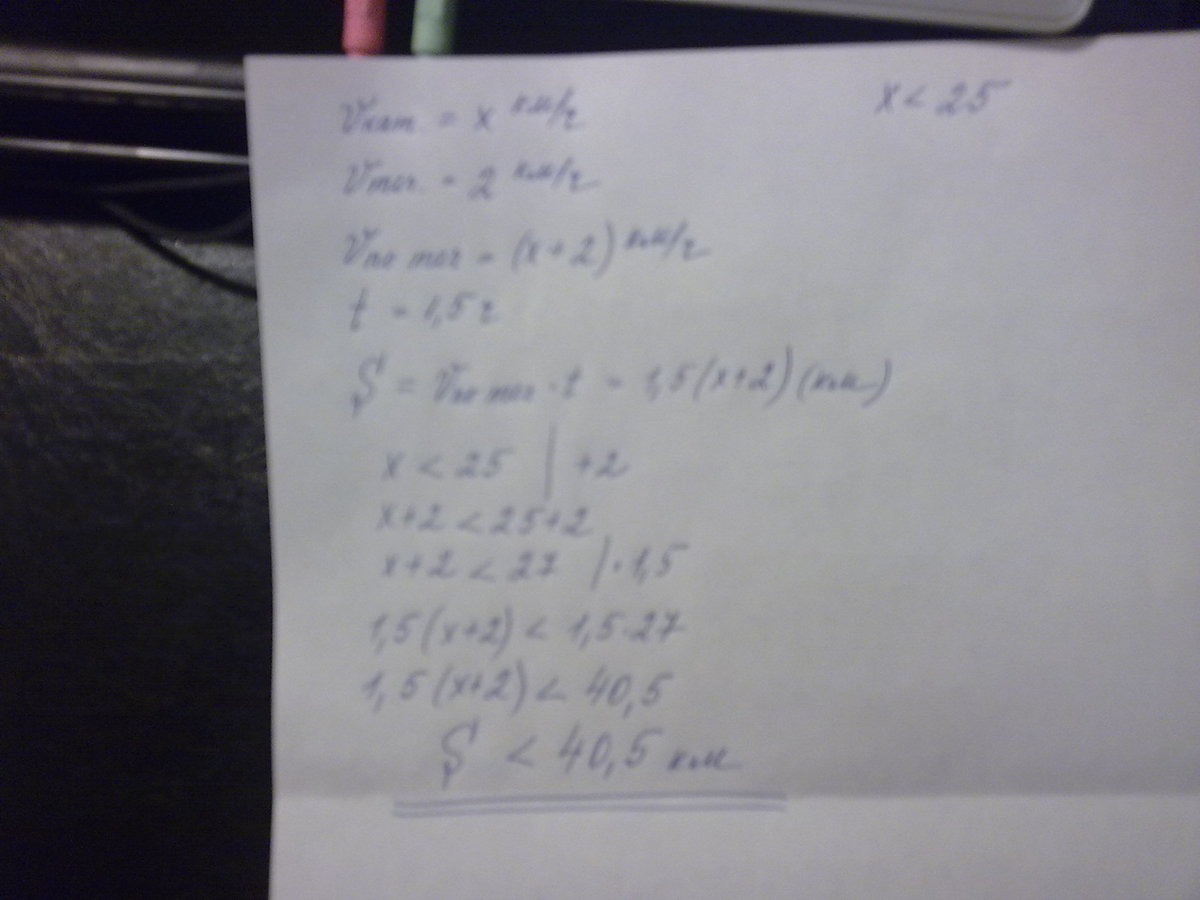 Vкат. = x км/ч x < 25
Vтеч. = 2 км/ч
Vпо теч = (x+2) км/ч
t = 1,5 ч
S = Vпо теч · t = 1,5(x+2) (км)
x < 25 | +2
x+2 < 25+2
x+2 < 27 | · 1,5
1,5(x+2) < 1,5·27
1,5(x+2) < 40,5
S < 40,5 км